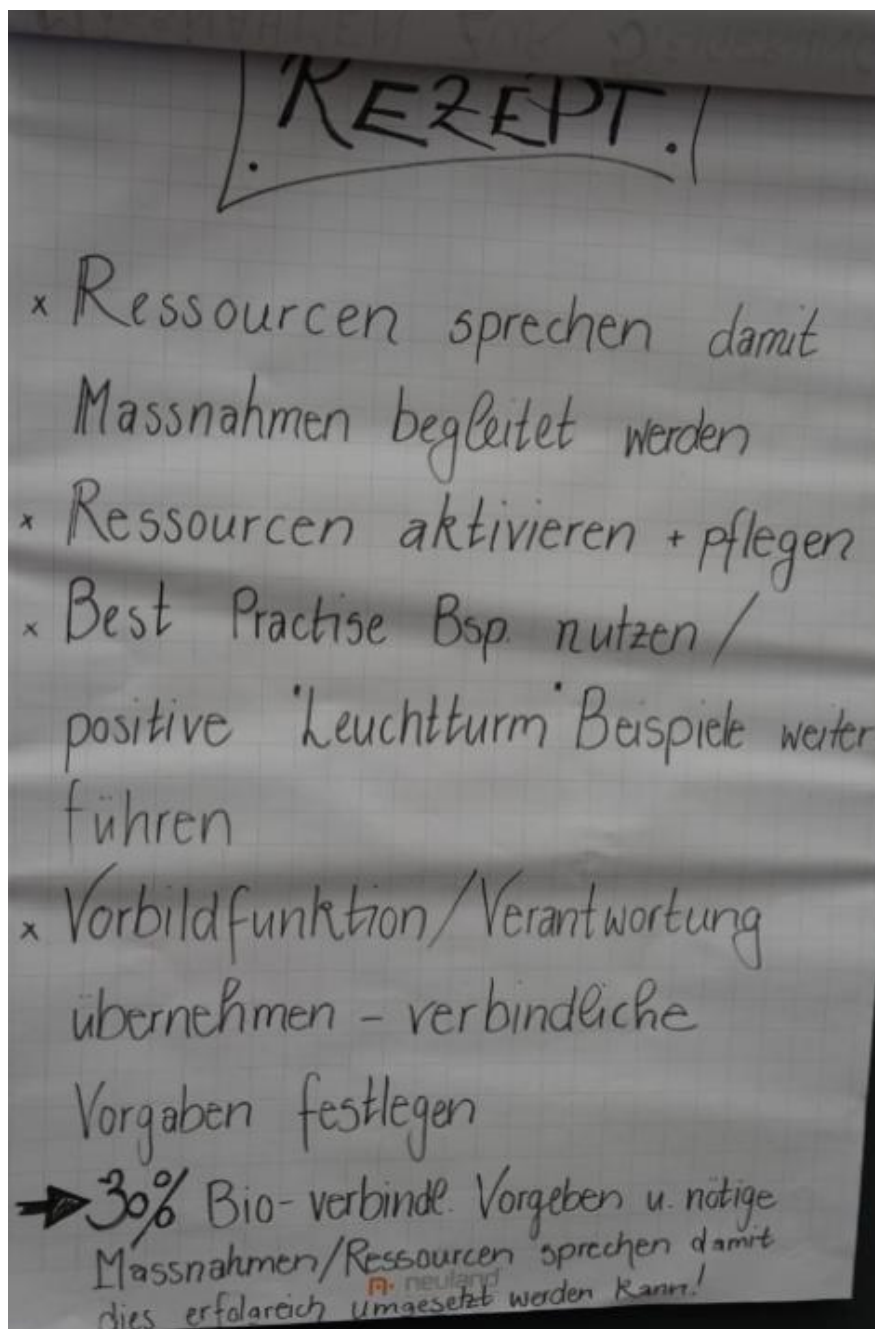 REZEPT.
x Ressourcen sprechen damit
Massnahmen begleitet werden
x Ressourcen aktivieren + pflegen
x Best Practise Bsp. nutzen /
positive "Leuchtturm" Beispiele weiter
führen
x Vorbildfunktion/Verantwortung
übernehmen - verbindliche
Vorgaben festlegen
→ 30% Bio-verbindl. Vorgeben u. nötige
Massnahmen/Ressourcen sprechen damit
neuland
dies erfolgreich umgesetzt werden kann!